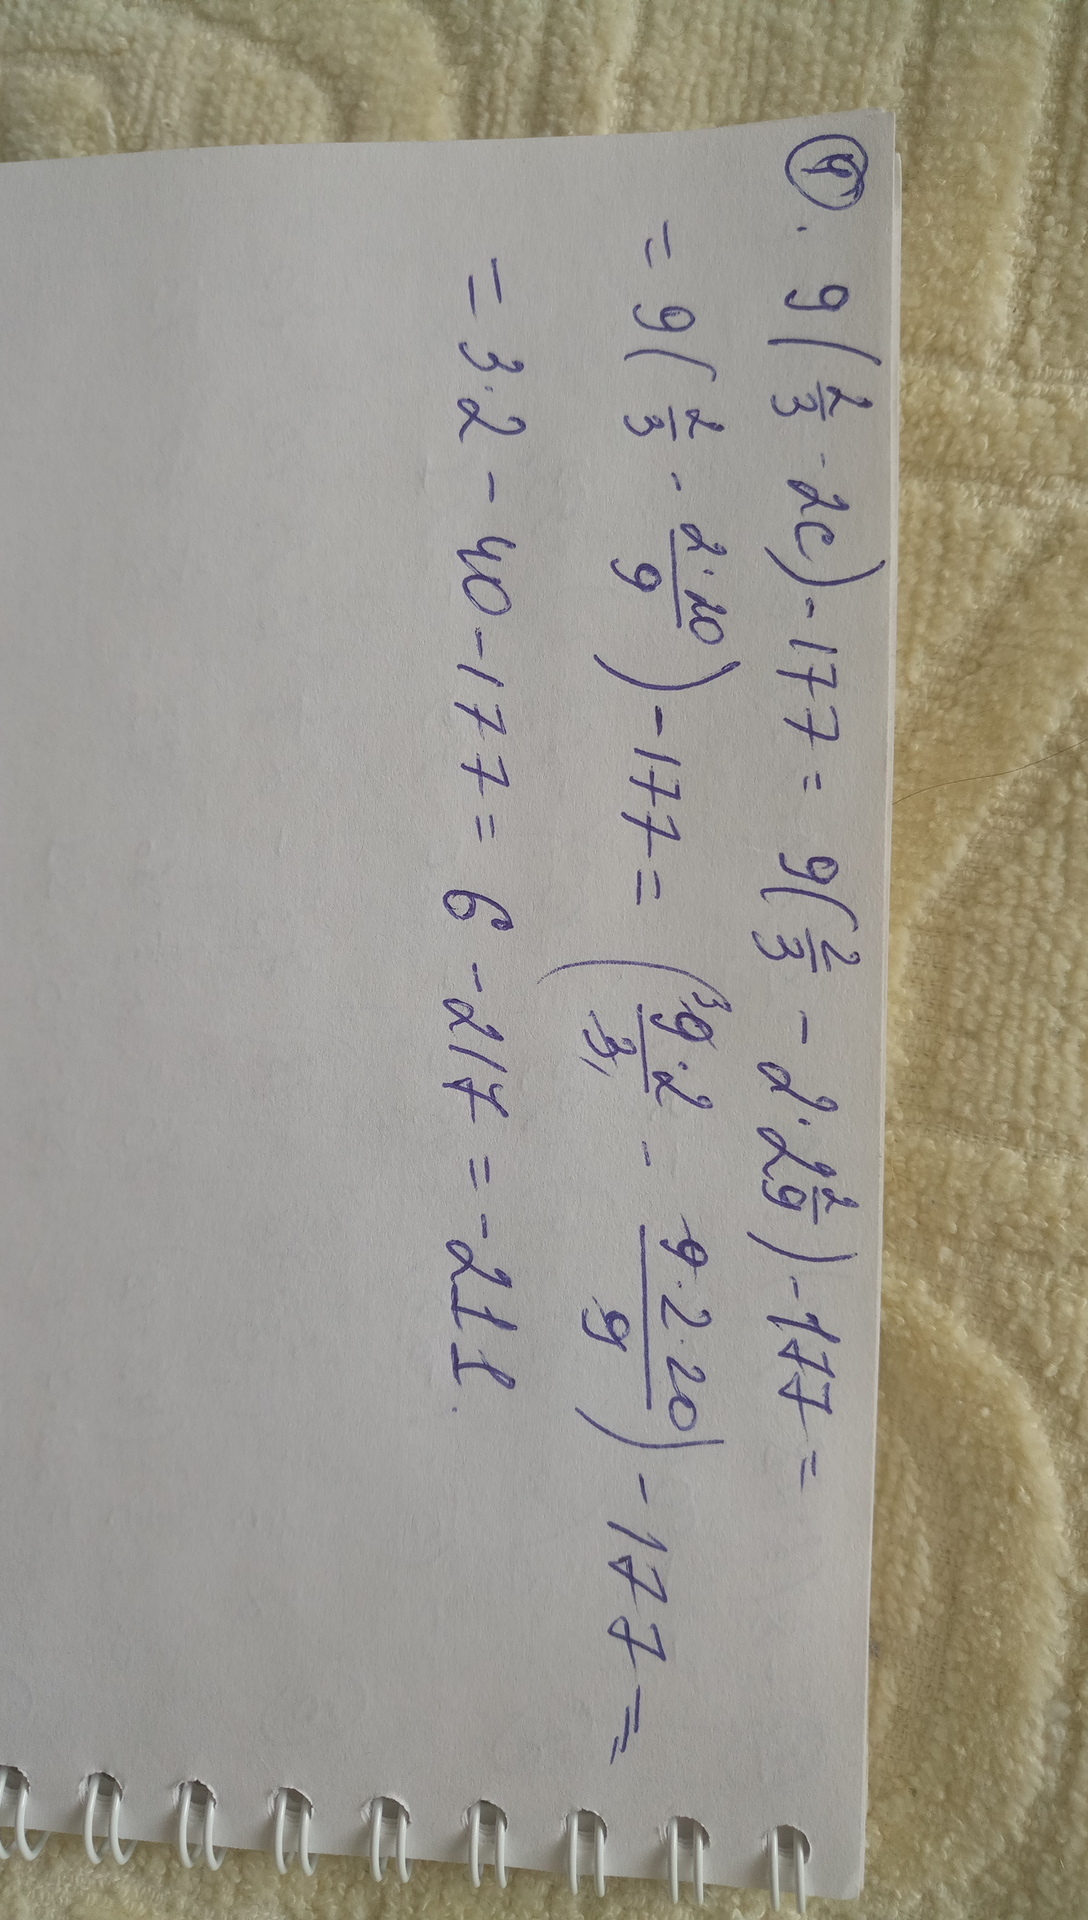 ④. 9(2/3 - 2c) - 177 = 9(2/3 - 2·2 2/9) - 177 =
= 9(2/3 - 2·20/9) - 177 = (³9·2/3₁ - 9·2·20/9) - 177 =
= 3·2 - 40 - 177 = 6 - 217 = -211.